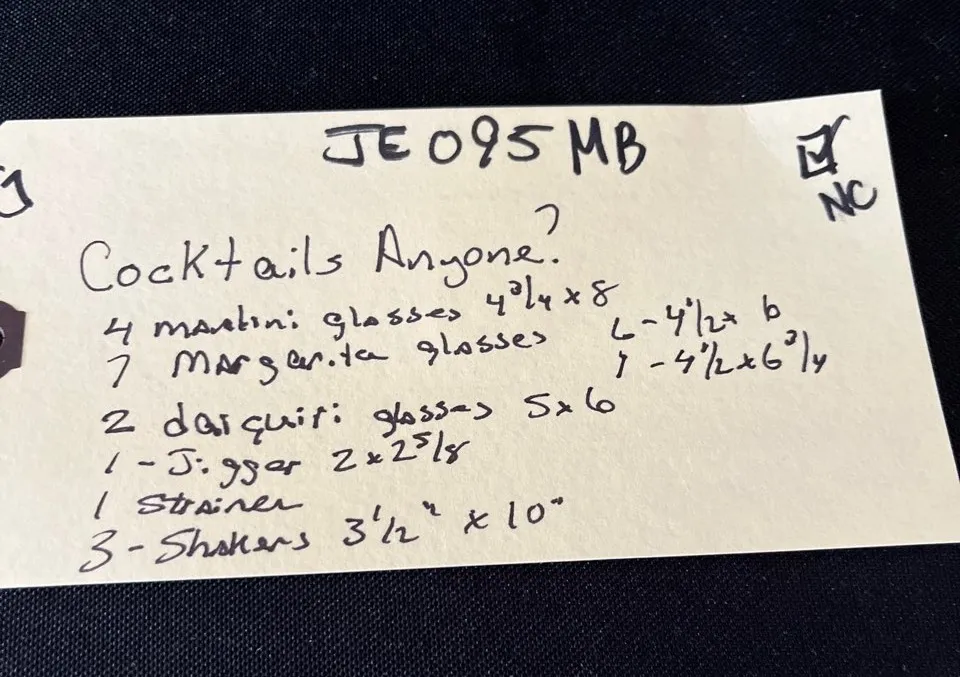 JE095MB
NC
Cocktails Anyone?
4 martini glasses 4 3/4 x 8
7 Margarita glasses 6 - 4 1/2 x 6
1 - 4 1/2 x 6 3/4
2 daiquiri glasses 5 x 6
1 - Jigger 2 x 2 5/8
1 Strainer
3 - Shakers 3 1/2" x 10"